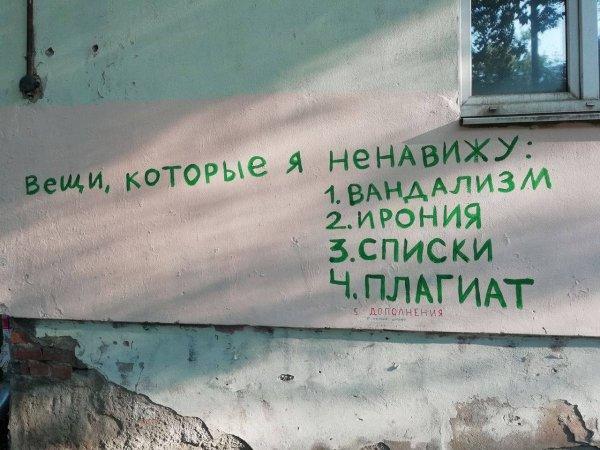 Вещи, которые я ненавижу:
1. Вандализм
2. Ирония
3. Списки
4. Плагиат
5. Дополнения